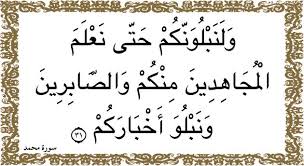 وَلَنَبْلُوَنَّكُمْ حَتَّى نَعْلَمَ
الْمُجَاهِدِينَ مِنْكُمْ وَالصَّابِرِينَ
وَنَبْلُوَ أَخْبَارَكُمْ ٣١
سورة محمد